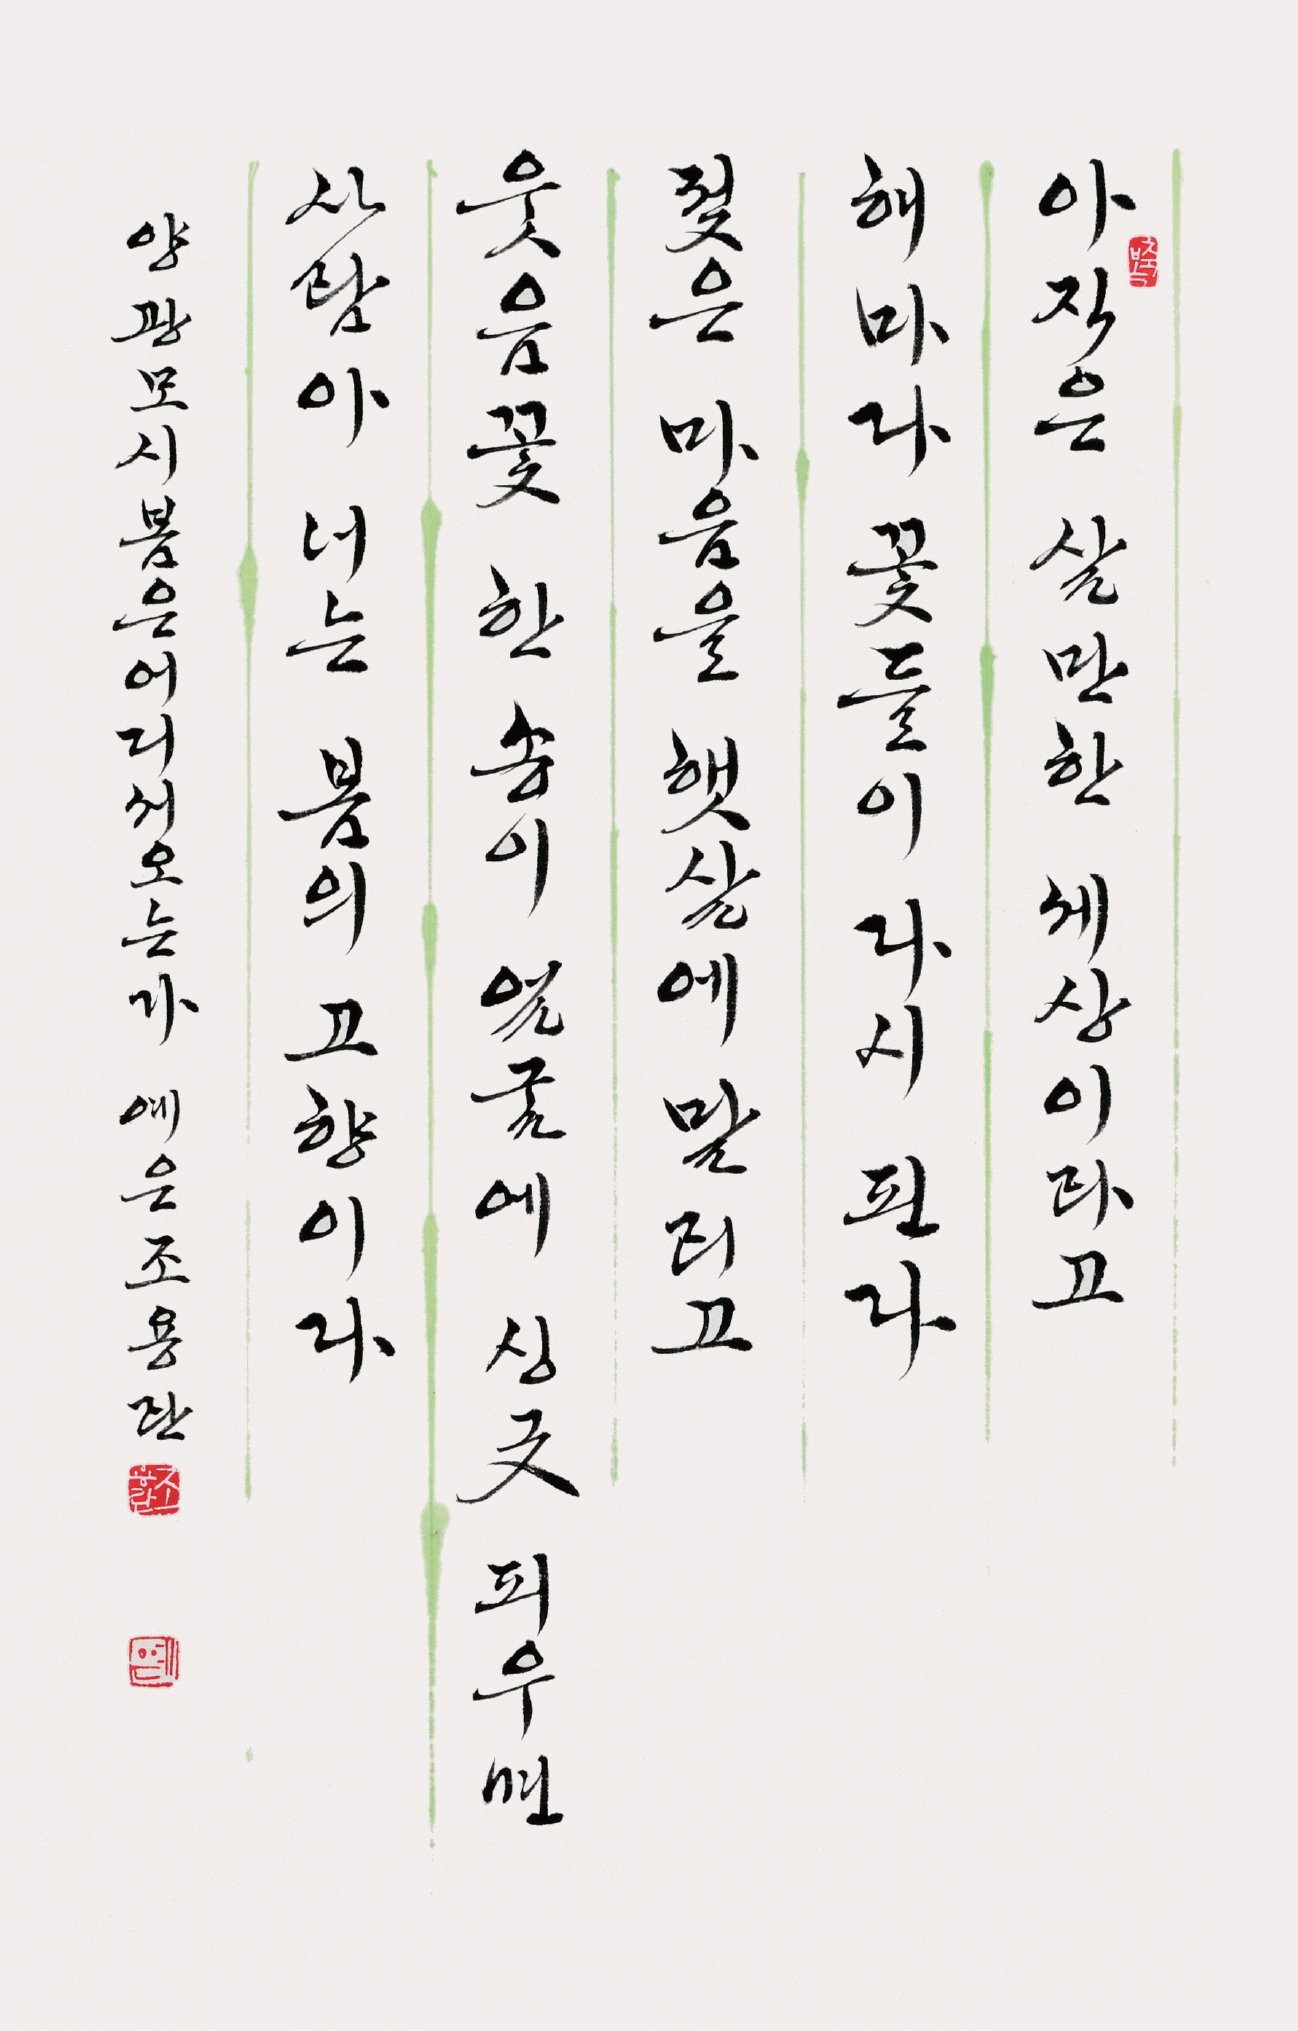 아직은 살만한 세상이라고
해마다 꽃들이 다시 핀다
젖은 마음을 햇살에 말리고
웃음꽃 한 송이 얼굴에 싱긋 피우면
사람아 너는 봄의 고향이다
양광모 시 봄은 어디서 오는가 예은 조용란